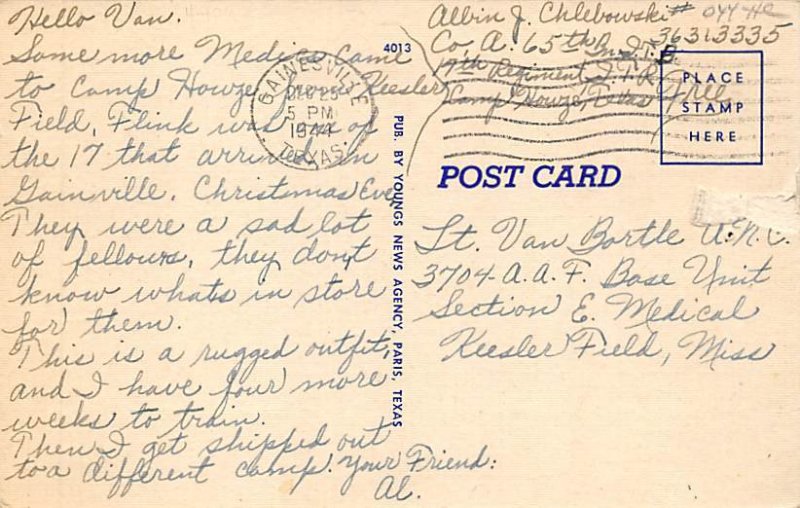 Hello Van.
Some more Medics came
to Camp Howze, Keesler
Field, Flink was one of
the 17 that arrived in
Gainville. Christmas Eve,
They were a sad lot
of fellows, they don't
know whats in store
for them.
This is a rugged outfit,
and I have four more
weeks to train.
Then I get shipped out
to a different camp. Your Friend:
Al.
4013
PUB. BY YOUNGS NEWS AGENCY, PARIS, TEXAS
GAINESVILLE
DEC 25
5 PM
1944
TEXAS
Albin J. Chlebowski #
36313335
Co. A. 65th Bn. I.T.B.
17th Regiment I.T.R.
Camp Howze, Texas
Free
PLACE
STAMP
HERE
POST CARD
Lt. Van Bortle A.N.C.
3704 A.A.F. Base Unit
Section E. Medical
Keesler Field, Miss